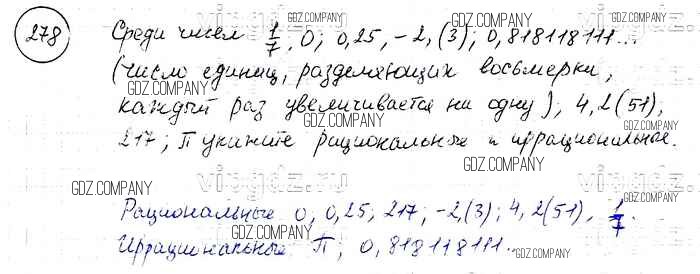 278 Среди чисел 1/7, 0; 0,25, -2,(3); 0,818118111...
(число единиц, разделяющих восьмерки,
каждый раз увеличивается на одну); 4,2(51),
217; π укажите рациональные и иррациональные.
Рациональные 0, 0,25; 217; -2,(3); 4,2(51), 1/7.
Иррациональные π; 0,818118111...
GDZ.COMPANY
GDZ.COMPANY
GDZ.COMPANY
GDZ.COMPANY
GDZ.COMPANY
GDZ.COMPANY
GDZ.COMPANY
GDZ.COMPANY
GDZ.COMPANY
GDZ.COMPANY
GDZ.COMPANY